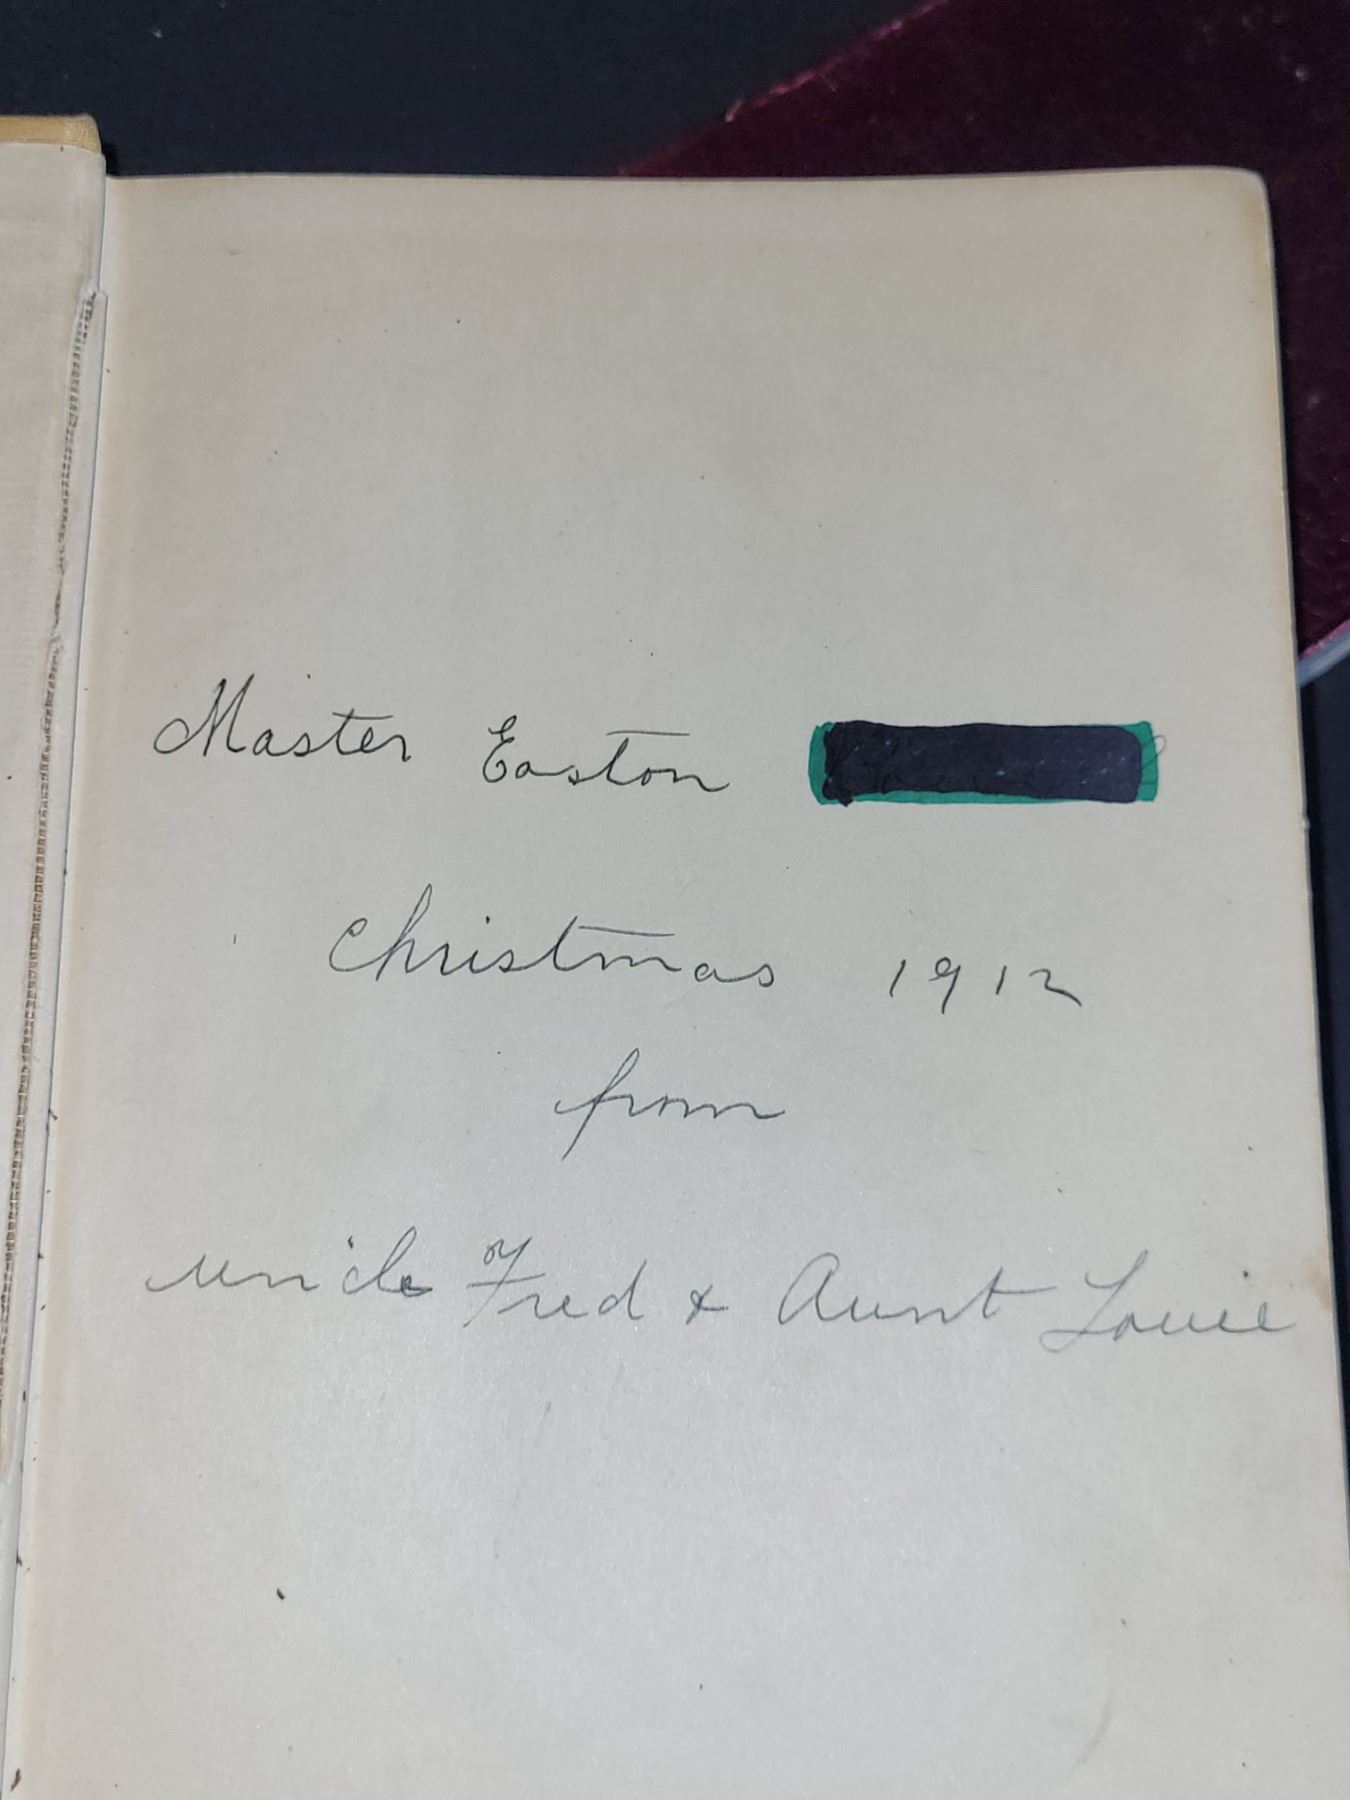 Master Easton
Christmas 1912
from
uncle Fred & Aunt Louie